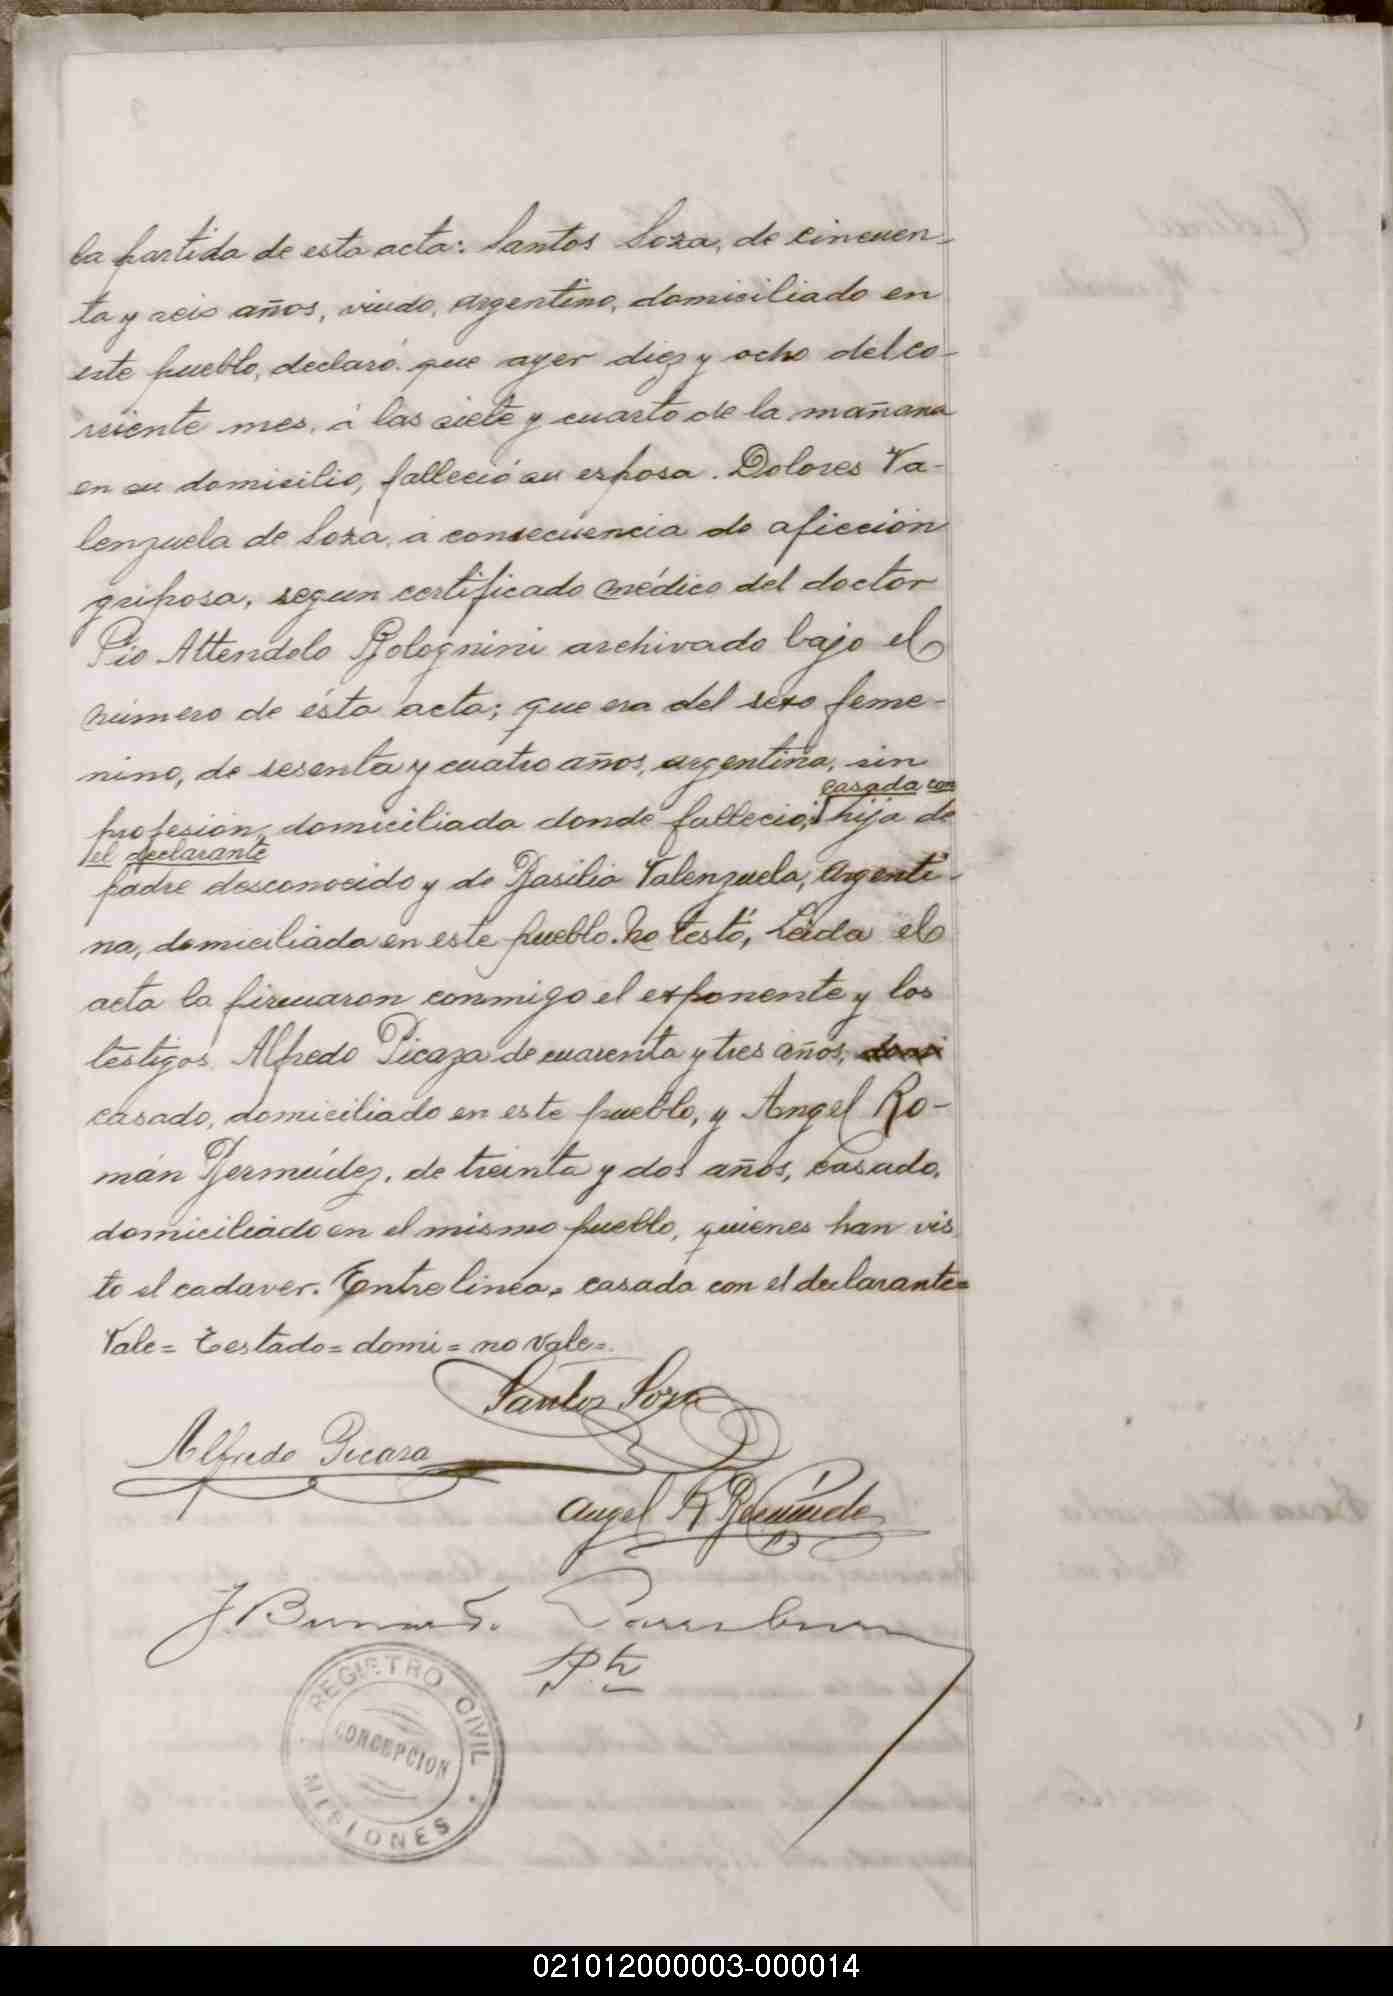 la partida de esta acta: Santos Soza, de cincuen-
ta y seis años, viudo, argentino, domiciliado en
este pueblo, declaró: que ayer diez y ocho del co-
rriente mes, á las siete y cuarto de la mañana
en su domicilio, falleció su esposa. Dolores Va-
lenzuela de Soza, á consecuencia de aficción
griposa, segun certificado médico del doctor
Pio Attendolo Bolognini archivado bajo el
número de ésta acta; que era del sexo feme-
nino, de sesenta y cuatro años, argentina, sin
casada con
profesión, domiciliada donde falleció; hija de
el declarante
padre desconocido y de Basilia Valenzuela, argenti-
na, domiciliada en este pueblo. No testó, Leida el
acta la firmaron conmigo el exponente y los
testigos. Alfredo Picaza de cuarenta y tres años, domi
casado, domiciliado en este pueblo, y Angel Ro-
mán Bermúdez, de treinta y dos años, casado,
domiciliado en el mismo pueblo, quienes han vis
to el cadaver. Entre linea = casada con el declarante =
Vale = Testado = domi = no vale =.
Santos Soza
Alfredo Picaza
Angel R Bermúdez
REGISTRO CIVIL
CONCEPCION
MISIONES
021012000003-000014